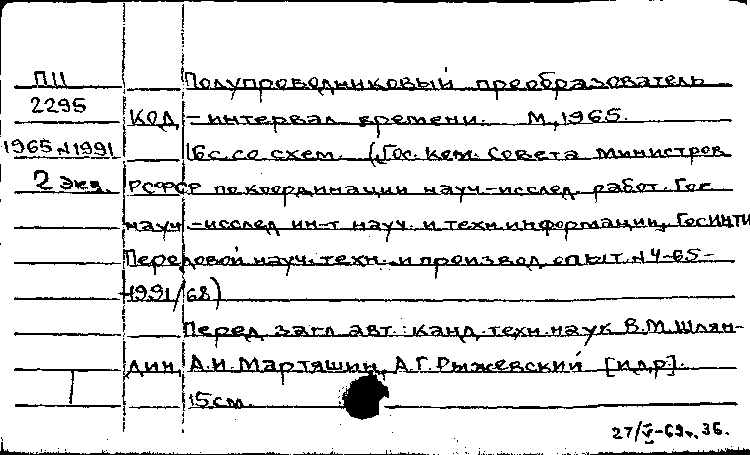 П11
2295
1965 N1991
2 экз.
Полупроводниковый преобразователь
код – интервал времени. М, 1965.
16с. со схем. (Гос. ком. Совета министров
РСФСР по координации науч.-исслед. работ. Гос
науч.-исслед ин-т науч. и техн. информации, ГОСИНТИ
Передовой науч. техн. и производ. опыт. N 4-65-
1991/68)
Перед загл. авт.: канд. техн. наук В.М. Шлян-
дин, А.И. Мартяшин, А.Г. Рыжевский [и др].
15 см.